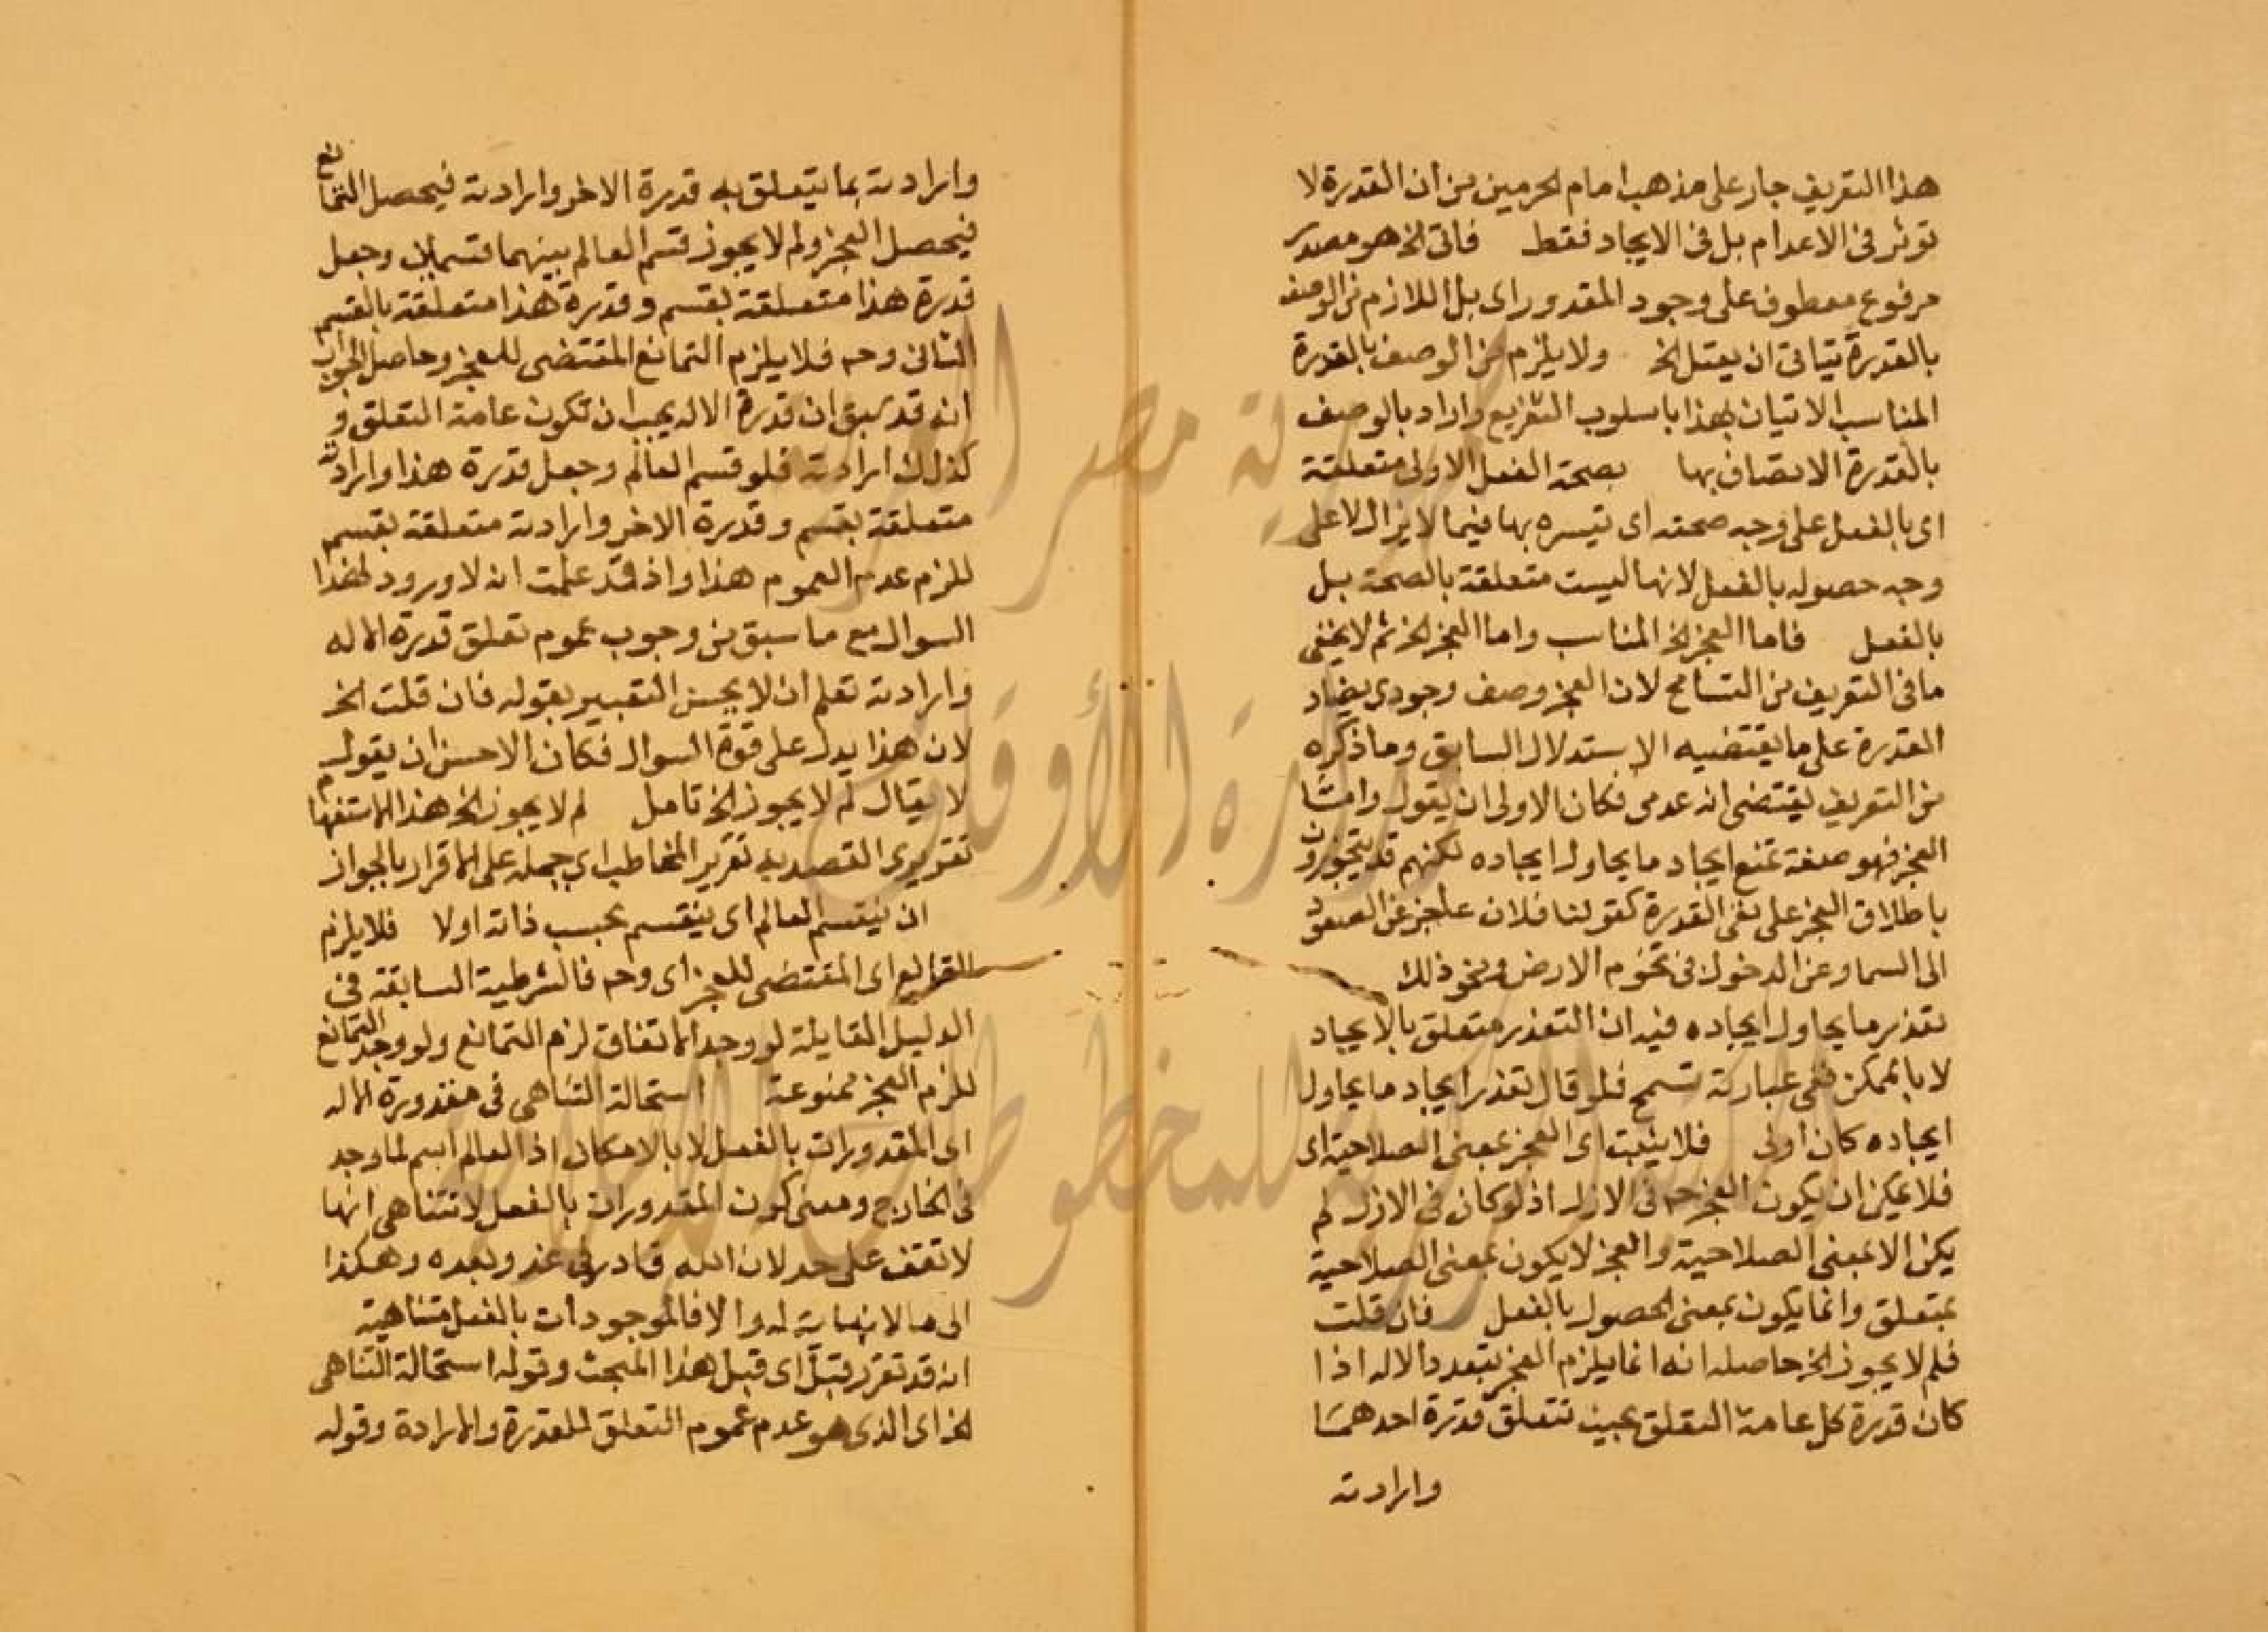 هذا التعريف جار على مذهب امام الحرمين من ان القدرة لا
توثر فى الاعدام بل فى الايجاد فقط فاتى الخ هو مصدر
مرفوع معطوف على وجود المقدور اى بل اللازم من الوصف
بالقدرة يتاتى ان يفعل الخ ولا يلزم من الوصف بالقدرة
المناسب الاتيان بهذا باسلوب التفريع واراد بالوصف
بالقدرة الاتصاف بها بصحة الفعل الاولى متعلقة
اى بالفعل على وجه صحته اى تيسره بها فيما لا يزال لا على
وجه حصوله بالفعل لانها ليست متعلقة بالصحة بل
بالفعل فاما العجز الخ المناسب واما العجز الخ ثم لا يخفى
ما فى التعريف من التسامح لان العجز وصف وجودى يضاد
القدرة على ما يقتضيه الاستدلال السابق وما ذكره
من التعريف يقتضى انه عدمى فكان الاولى ان يقول وامّا
العجز فهو صفة تمنع ايجاد ما يحاول ايجاده لكنهم قد يتجوزون
باطلاق العجز على نفى القدرة كقولنا فلان عاجز عن الصعود
الى السما وعن الدخول فى تخوم الارض ونحو ذلك
تعذر ما يحاول ايجاده فيه ان التعذر متعلق بالايجاد
لا بالممكن ففى عبارته تسمح فلو قال تعذر ايجاد ما يحاول
ايجاده كان اولى فلا يثبت اى العجز بمعنى الصلاحية اى
فلا يمكن ان يكون العجز ح فى الازل اذ لو كان فى الازل لم
يكن الا بمعنى الصلاحية والعجز لا يكون بمعنى الصلاحية
بمتعلق وانما يكون بمعنى الحصول بالفعل فان قلت
فلم لا يجوز الخ حاصله انه انما يلزم العجز بتعدد الاله اذا
كان قدرة كل عامة التعلق بحيث تتعلق قدرة احدهما
وارادته
وارادته بما يتعلق به قدرة الاخر وارادته فيحصل التمانع
فيحصل العجز ولم لا يجوز قسم العالم بينهما قسمين وجعل
قدرة هذا متعلقة بقسم وقدرة هذا متعلقة بالقسم
الثانى وح فلا يلزم التمانع المقتضى للعجز وحاصل الجواب
انه قد سبق ان قدرة الاله يجب ان تكون عامة التعلق و
كذلك ارادته فلو قسم العالم وجعل قدرة هذا وارادته
متعلقة بقسم وقدرة الاخر وارادته متعلقة بقسم
للزم عدم العموم هذا واذ قد علمت انه لا ورود لهذا
السوال مع ما سبق من وجوب عموم تعلق قدرة الاله
وارادته تعلم ان لا يحسن التعبير بقوله فان قلت الخ
لان هذا يدل على قوة السوال فكان الاحسن ان يقول
لا يقال لم لا يجوز الخ تامل لم لا يجوز الخ هذا الاستفهام
تقريرى القصد به تقرير المخاطب اى حمله على الاقرار بالجواز
ان ينقسم العالم اى ينقسم بحسب ذاته اولا فلا يلزم
التمانع اى المقتضى للعجز اى وح فالشرطية السابقة فى
الدليل القايلة لو وجد الاتفاق لزم التمانع ولو وجد التمانع
للزم العجز ممنوعة استحالة التناهى فى مقدورة الاله
اى المقدورات بالفعل لا بالامكان اذ العالم اسم لما وجد
فى الخارج ومعنى كون المقدورات بالفعل لا تتناهى انها
لا تقف على حد لان الله قادر فى غد وبعده وهكذا
الى ما لا نهاية له والا فالموجودات بالفعل متناهية
انه قد تقرر قبل اى قبل هذا المبحث وقوله استحالة التناهى
الخ اى الذى هو عدم عموم التعلق للقدرة والارادة وقوله